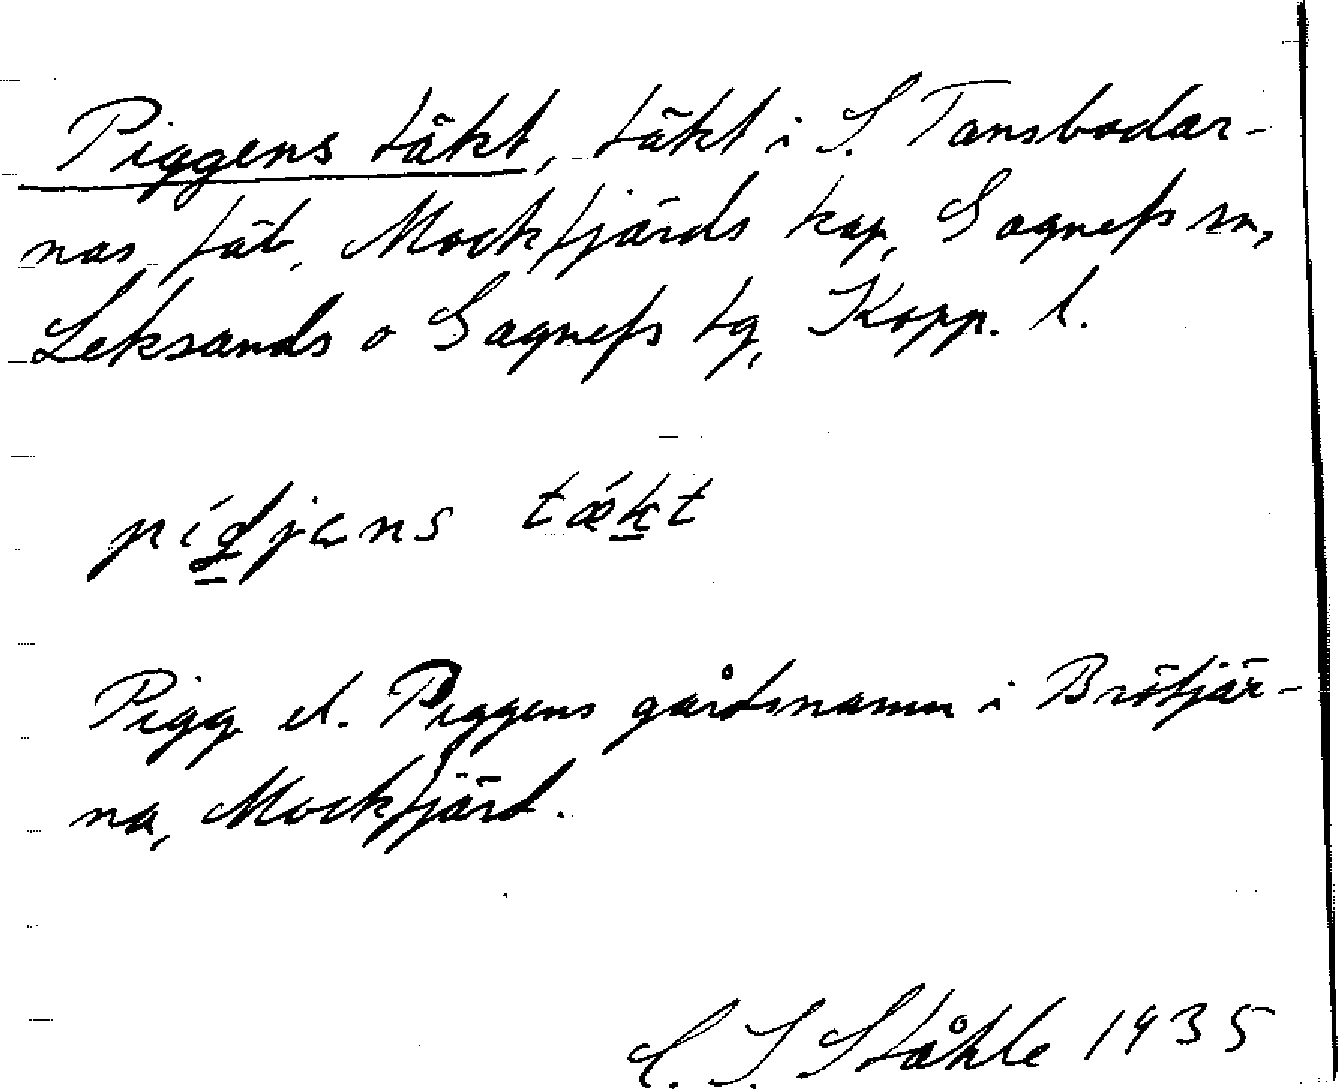 Piggens täkt, täkt i S. Tansbodar-
nas fäb. Mockfjärds kap, Gagnefs sn,
Leksands o Gagnefs tg, Kopp. l.
pídjens tǽkt
Pigg el. Piggens gårdsnamn i Brötjär-
na, Mockfjärd.
C. I. Ståhle 1935